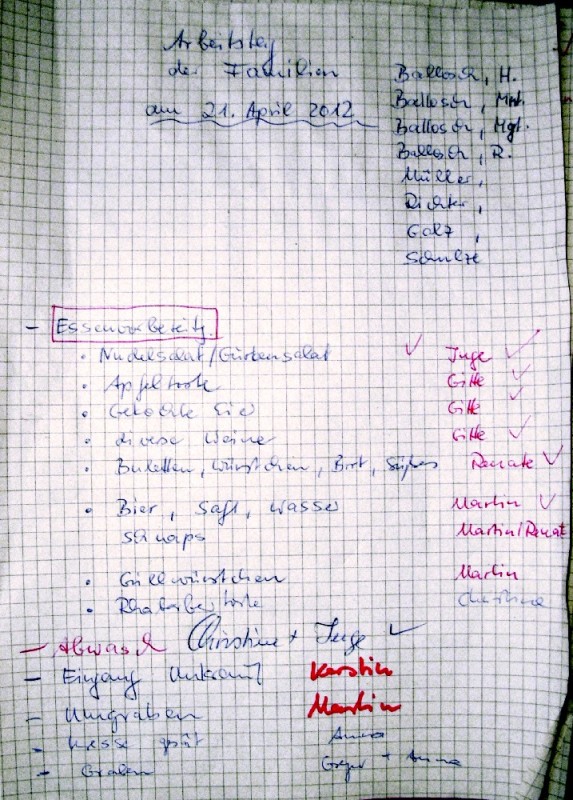 Arbeitstag
der Familien
am 21. April 2012
Ballosch, H.
Ballosch, Mrt.
Ballosch, Mgt.
Ballosch, R.
Müller,
Richter,
Golz,
Schulze
- Essenvorbereitg.
• Nudelsalat/Gurkensalat ✓ Inge ✓
• Apfeltorte Gitte ✓
• Gekochte Eier Gitte ✓
• diverse Weine Gitte ✓
• Buletten, Würstchen, Brot, Süßes Renate ✓
• Bier, Saft, Wasser Martin ✓
Schnaps Martin/Renat
• Grillwürstchen Martin
• Rhabarbertorte Christine
- Abwasch Christine + Inge ✓
- Eingang Unkraut Kerstin
- Umgraben Martin
- Anna
- Graben + Anna